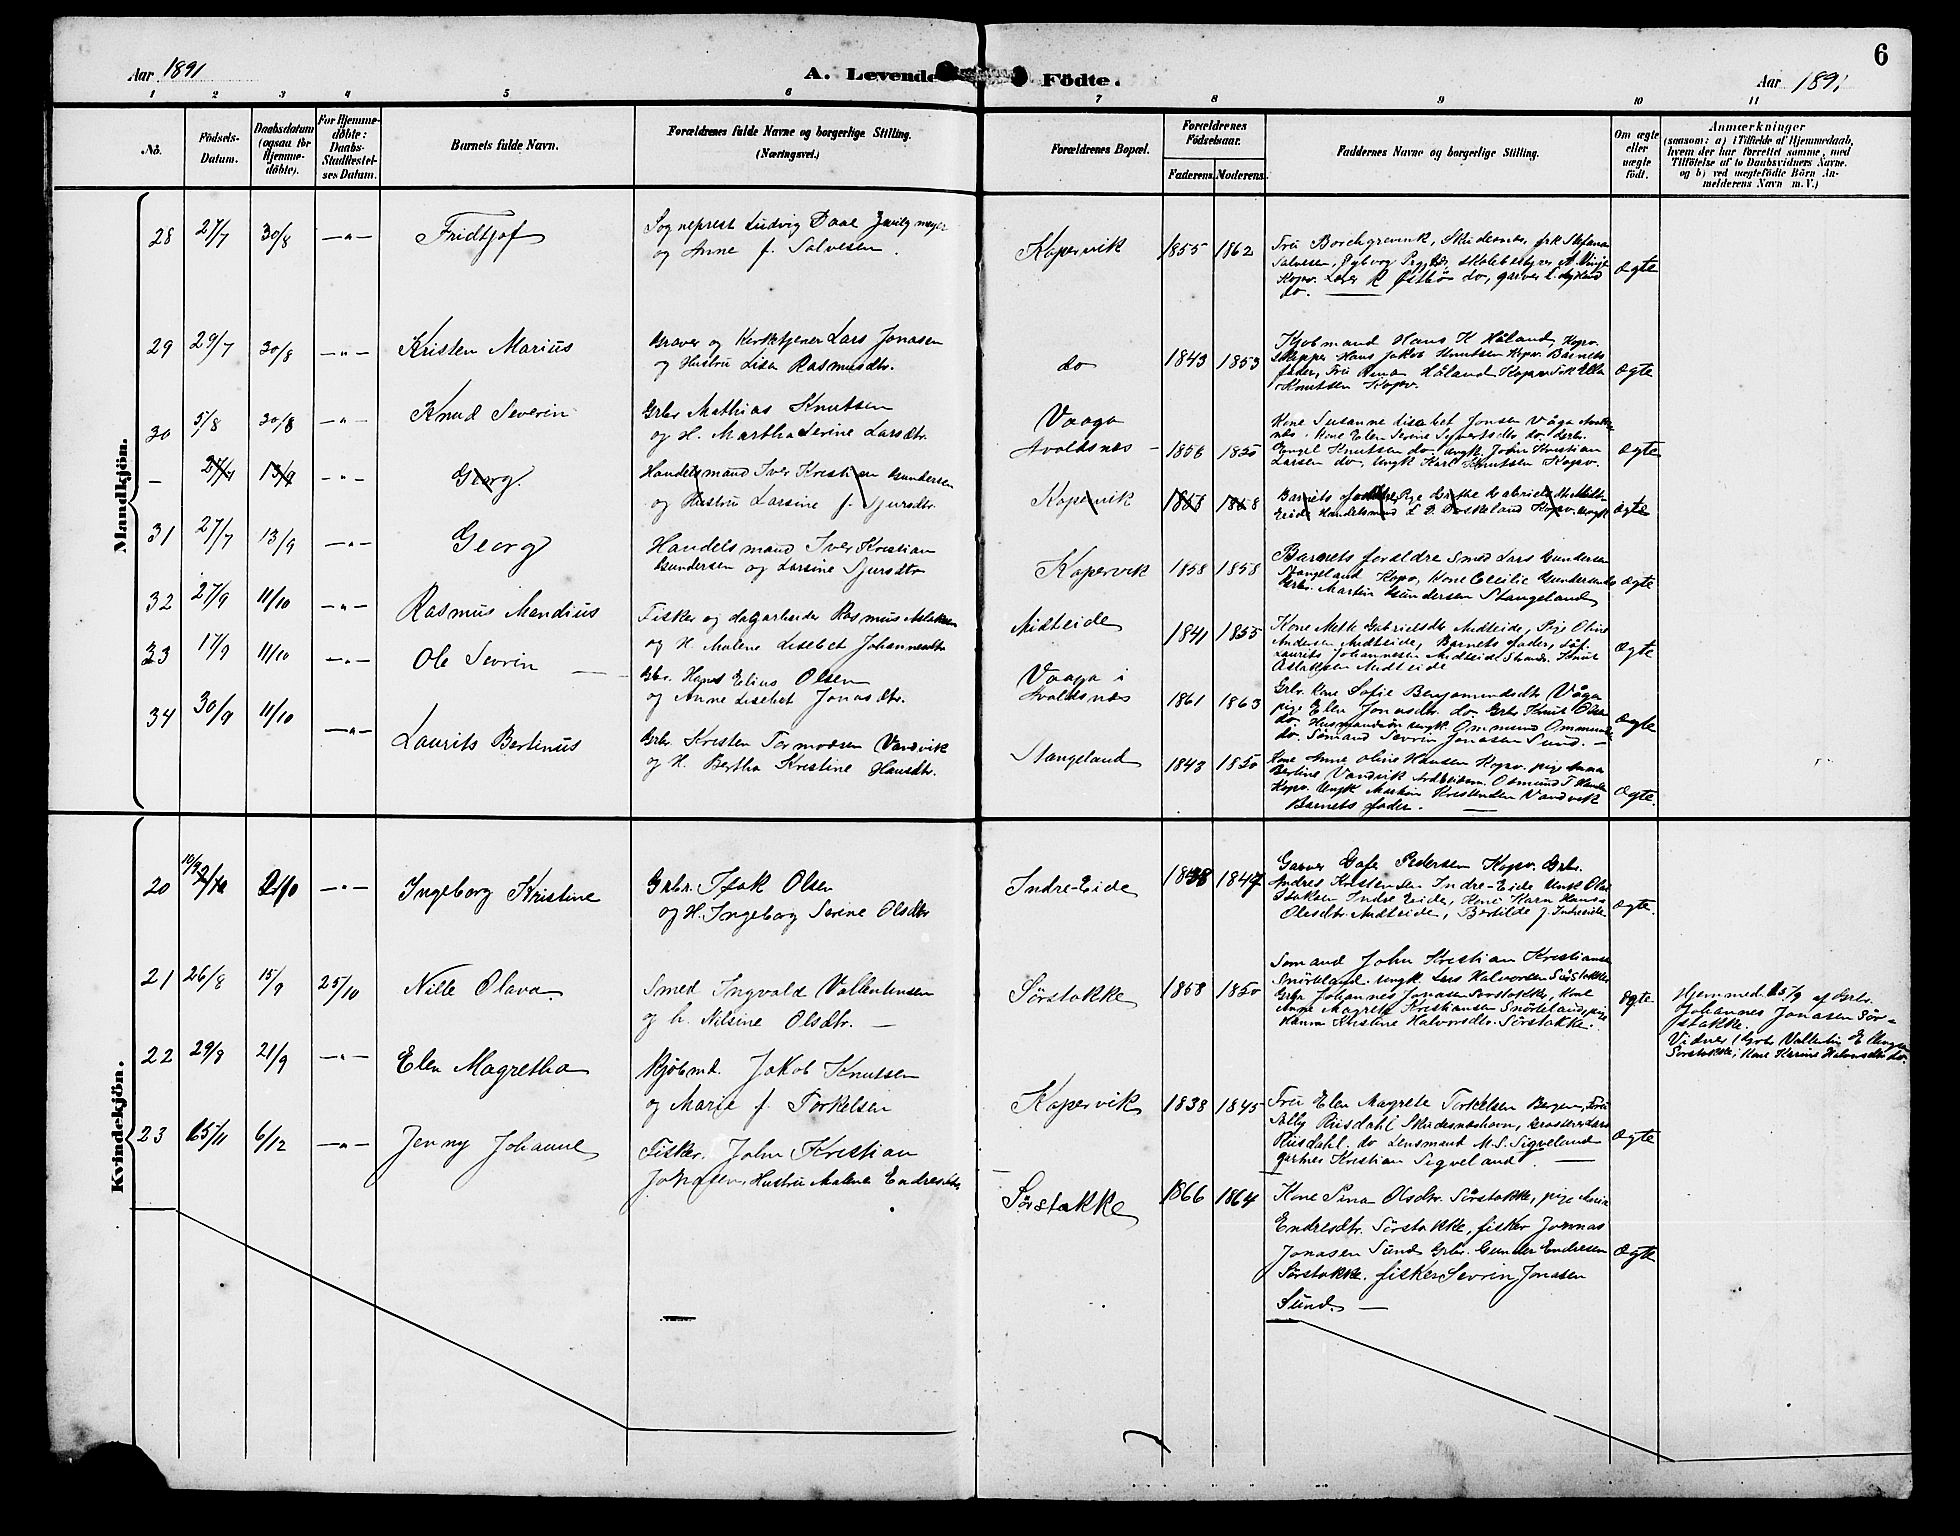 6
Aar 1891
A. Levende Födte.
Aar 1891
1 2 3 4 5 6 7 8 9 10 11
No.
Födsels-Datum.
Daabsdatum (ogsaa for Hjemmedöbte).
For Hjemmedöbte: Daabs-Stadfestelses Datum.
Barnets fulde Navn.
Forældrenes fulde Navne og borgerlige Stilling.
(Næringsvei.)
Forældrenes Bopæl.
Forældrenes Födselsaar.
Faderens. Moderens.
Faddernes Navne og borgerlige Stilling.
Om ægte eller uægte födt.
Anmærkninger
(saasom: a) i Tilfælde af Hjemmedaab,
hvem der har forrettet samme, med
Tilföielse af to Daabsvidners Navne.
og b) ved uægtefödte Börn An-
melderens Navn m. V.)
Mandkjön.
28 27/7 30/8 —"— Fridtjof
Sogneprest Ludvig Daae Zwilgmeyer
og Anne f. Salvesen.
Kopervik 1855 1862
Fru Borchgrevink, Skudesnes, frk Stefana
Salvesen, skolebestyrer
Kopv. Lærer R Østbö do, garver
do.
ægte
29 29/7 30/8 —"— Kristen Marius
Graver og Kirketjener Lars Jonasen
og Hustru Lisa Rasmusdtr.
do 1843 1853
Kjobmand Hans K Håland, Kopv.
Skipper Hans Jakob Knutsen Kopv. Barnets
fader, Fru Håland Kopv
Knutsen Kopv.
ægte
30 5/8 30/8 —"— Knud Severin
Grbr Mathias Knutsen
og H. Martha Serine Larsdtr.
Vaaga
Avoldsnes — 1856 1850
Kone Susanne Lisabet Jonsen Våga
Kone Elen Serine do. Grbr.
Engel Knutsen do, ungk. John Kristian
Larsen do, ungk Karl Knutsen Kopv.
ægte
— 27/7 13/9 —"— Georg
Handelsmand Iver Kristian Gundersen
og Hustru Larsine f. Sjursdtr.
Kopervik 1858 1858
Barnets
Eide Handelsmand Kopv. ungk
ægte
31 27/7 13/9 —"— Georg
Handelsmand Iver Kristian
Gundersen og Larsine Sjursdtr
Kopervik 1858 1858
Barnets foraldre Smed Lars Gundersen
Stangeland Kopv, Kone Cecilie Gundersen do
Grbr. Martin Gundersen Stangeland
ægte
32 27/9 11/10 —"— Rasmus Mandius
Fisker og dagarbeider Rasmus
og H. Malene Lisebet Johannesdtr
Midteide 1841 1855
Kone Mette Gabrielsdtr Midteide, Pige Oline
Andersen Midteide, Barnets fader,
Laurits Johannesen Midteide Knut
Aslaksen Midteide
ægte
33 17/9 11/10 —"— Ole Sevrin —
Gbr. Hans Elius Olsen
og Anne Lisebet Jonasdtr.
Vaaga i
Avoldsnes 1861 1863
Grbr. kone Sofie Benjaminsdtr Våga
pige Elen Jonasdtr. do. Grbr Knut Olsen
do. Husmandssön ungk Ommund
do. Sömand Sevrin Jonasen Sund. —
ægte
34 30/9 11/10 —"— Laurits Bertinus
Grbr. Kristen Tormodsen Vandvik
og H. Bertha Kristine Hansdtr.
Stangeland 1843 1850
Kone Anne Oline Hansen Kopv. pige Anna
Bertine Vandvik Osmund T
Kopv. Ungk Martin Kristensen Vandvik
Barnets fader.
ægte.
Kvindekjön.
20 10/9 —"— Ingeborg Kristine
Grbr. Isak Olsen
og H. Ingeborg Serine Olsdtr
Indre-Eide 1838 1847
Garver Pedersen Kopv. Grbr.
Andres Kristensen Indre-Eide Ungk
Isaksen Indre Eide, Kone Karn
Olesdtr. Midteide, Bertilde J. Indreeide
ægte.
21 26/8 15/9 25/10 Nille Olava.
Smed Ingvald Vallentinsen
og h. Nilsine Olsdtr. —
Sörstokke 1858 1850
Sömand John Kristian Kristiansen
Snörteland ungk. Lars Halvorsen Sörstokke
Grbr Johannes Jonasen Sörstokke, Kone
Anne Magreta Kristiansen Snörteland, pige
Hanna Kristine Halvorsdtr. Sörstokke.
ægte
Hjemmed. 15/9 af Grbr.
Johannes Jonasen Sör-
stokke.
Vidner Grbr Vallentin
Sörstokke,
22 29/8 21/9 —"— Elen Magretha
Kjöbmd. Jakob Knutsen
og Marie f. Torkelsen
Kopervik 1838 1845
Fru Elen Magrete Torkelsen Bergen, Fru
Risdahl Skudesneshavn,
Risdahl. do Lensmand M. S. Sigveland
gartner Kristian Sigveland. —
ægte
23 15/11 6/12 —"— Jenny Johanne
Fisker. John Kristian
Jonasen, Hustru Malene Endresdtr.
Sörstokke 1866 1864
Kone Sina Olsdtr. Sörstokke, pige
Endresdtr. Sörstokke, fisker Jonnas
Jonasen Sund Grbr. Gunder Endresen
Sörstokke. fisker Sevrin Jonasen
Sund. —
ægte